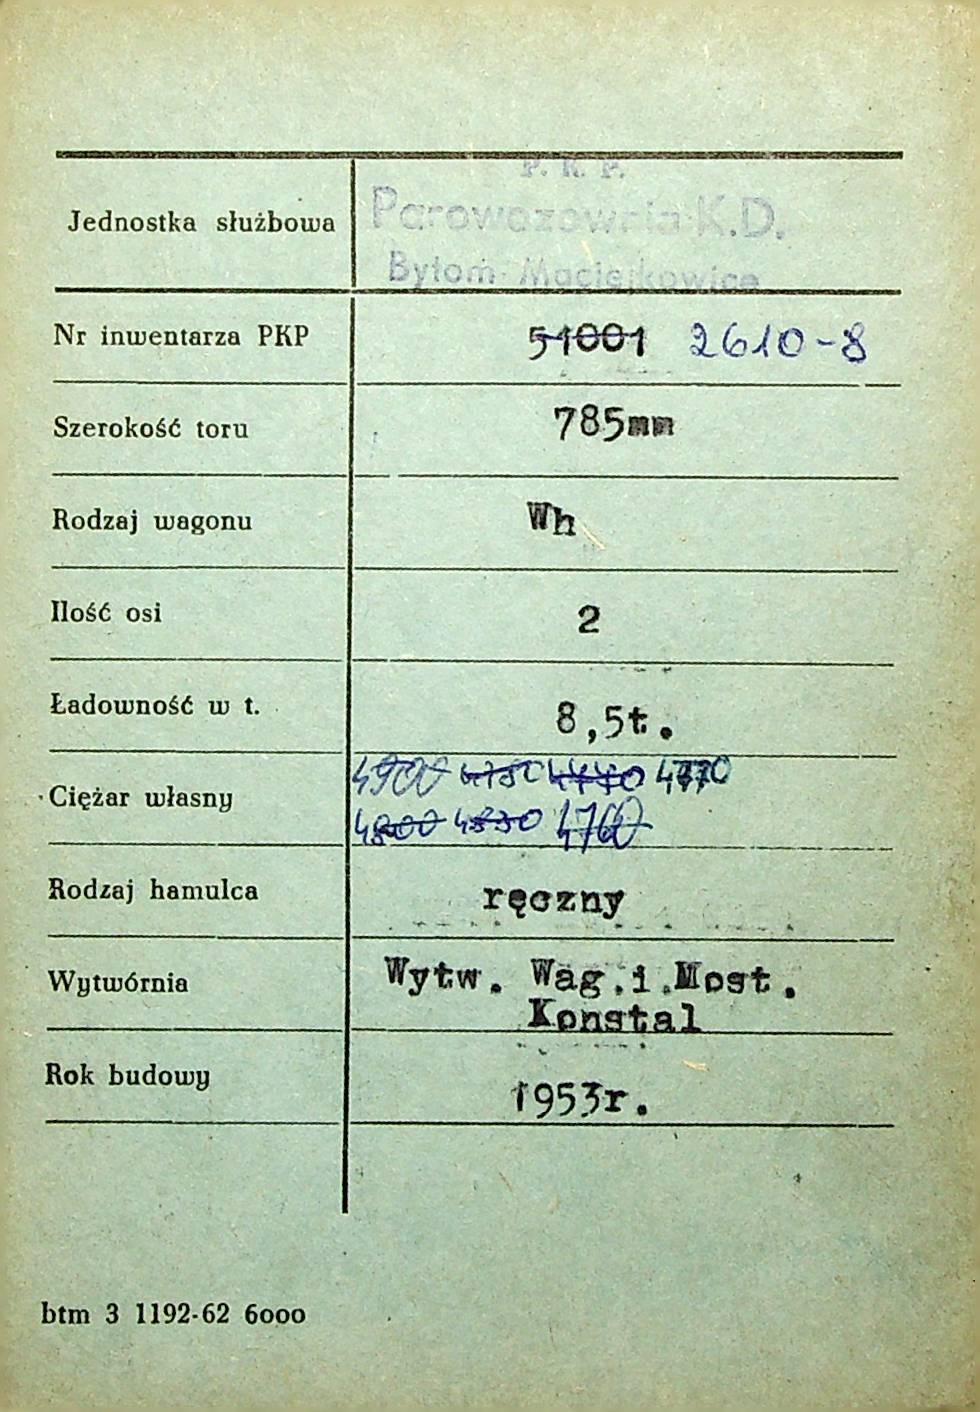 P. K. P.
Jednostka służbowa Parowozownia K.D.
Bytom Maciejkowice
Nr inwentarza PKP 51001 2610-8
Szerokość toru 785mm
Rodzaj wagonu Wh
Ilość osi 2
Ładowność w t. 8,5t.
4900 4750 4770
Ciężar własny
4800 4830 4760
Rodzaj hamulca ręczny
Wytwórnia Wytw. Wag.i.Most.
Konstal
Rok budowy 1953r.
btm 3 1192-62 6ooo